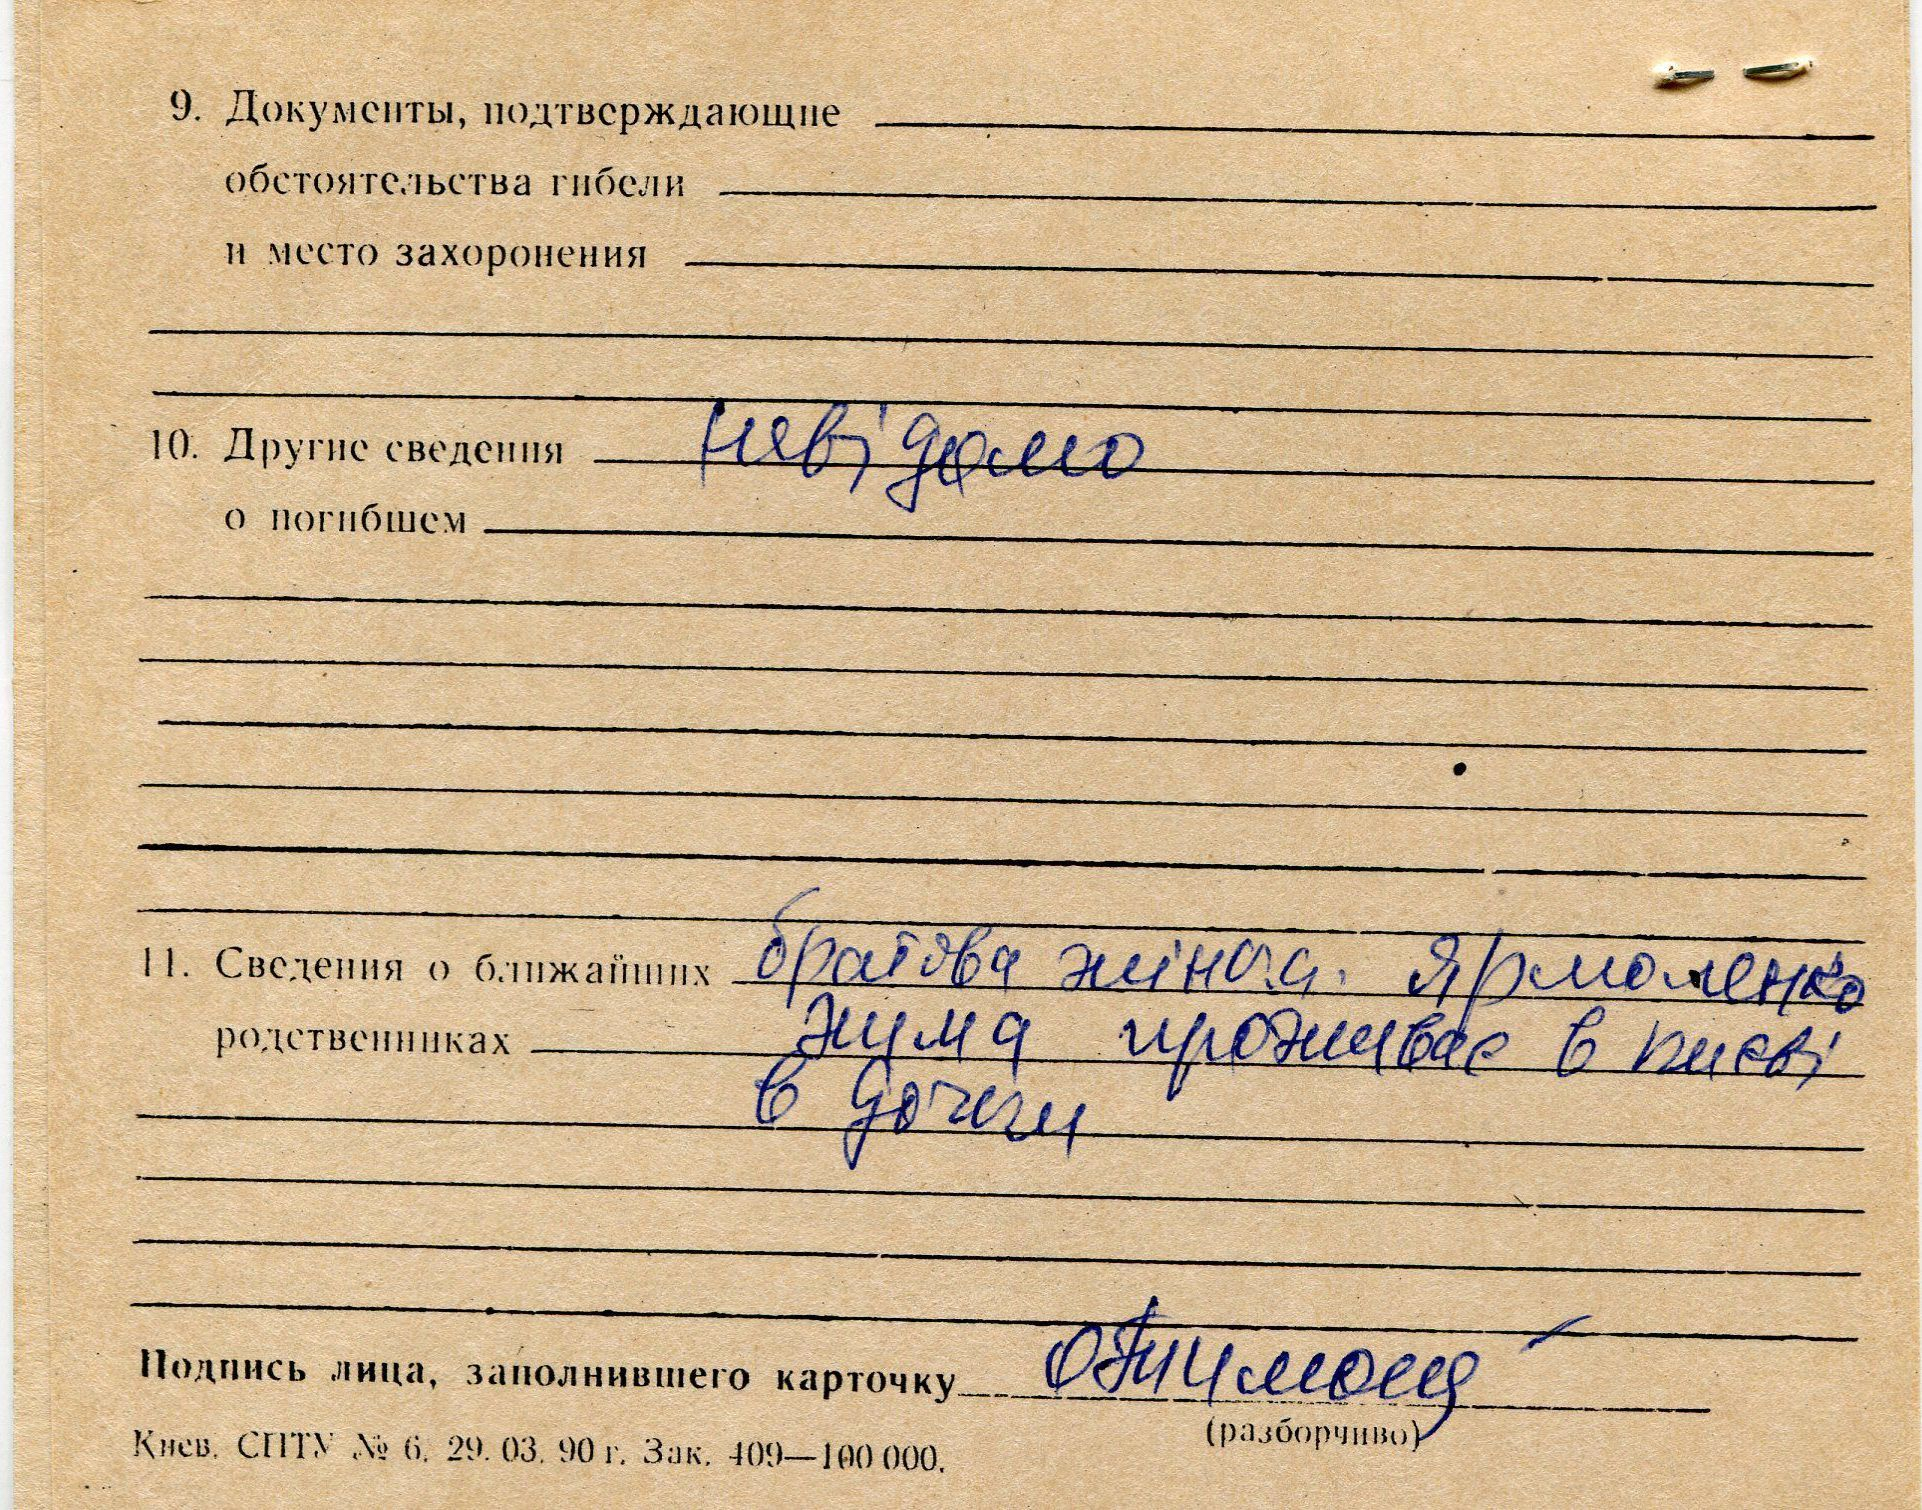 9. Документы, подтверждающие
обстоятельства гибели
и место захоронения
10. Другие сведения невідомо
о погибшем
11. Сведения о ближайших братова жінка. Ярмоленко
родственниках проживає в Києві
в дочки
Подпись лица, заполнившего карточку
(разборчиво)
Киев. СПТУ № 6. 29. 03. 90 г. Зак. 409—100 000.